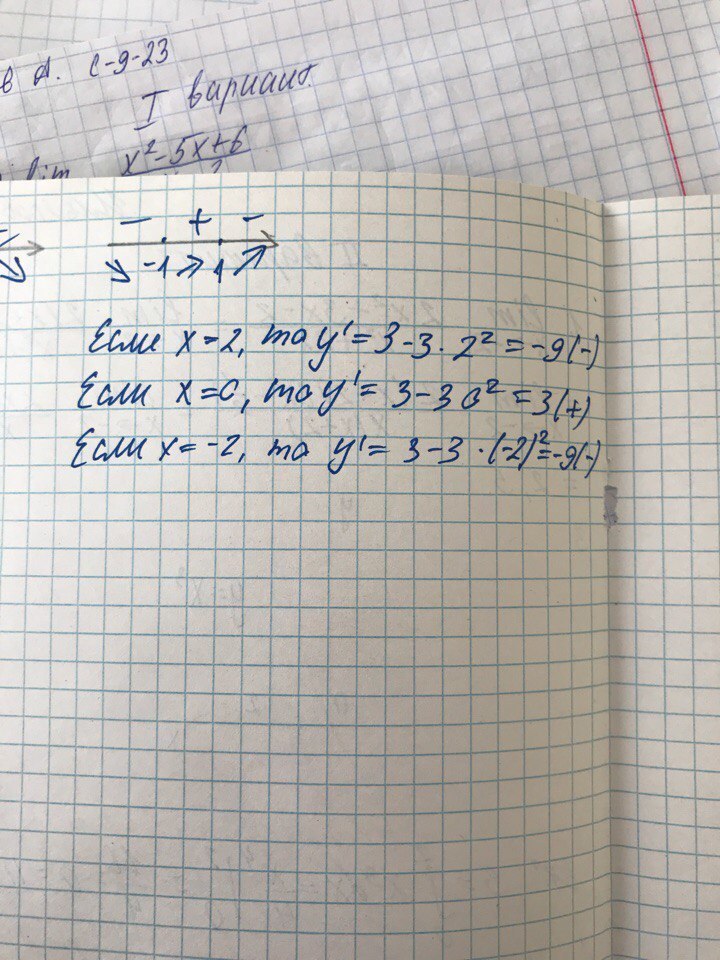 в А. С-9-23
I вариант.
lim x²-5x+6
- + -
-1 1
Если x=2, то y'=3-3·2²=-9(-)
Если x=0, то y'=3-3 0²=3(+)
Если x=-2, то y'=3-3·(-2)²=-9(-)